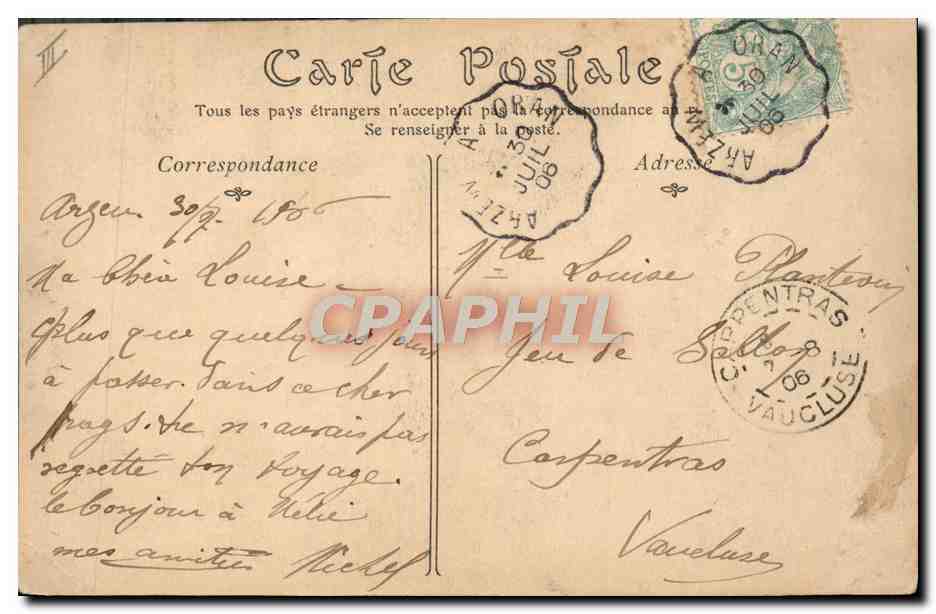 III
Carte Postale
Tous les pays étrangers n'acceptent pas la correspondance au
Se renseigner à la poste.
Correspondance
Adresse
ARZEW A ORAN
30
JUIL
06
ARZEW A ORAN
30
JUIL
06
5
Arzew 30/7 1906
Ma Chère Louise
plus que quelques jours
à passer dans ce cher
pays. tu n'aurais pas
regretté ton voyage.
le bonjour à Nélie
mes amitiés Michel
Mlle Louise
Jeu de Ballon
Carpentras
Vaucluse
CARPENTRAS
8
06
VAUCLUSE
CPAPHIL